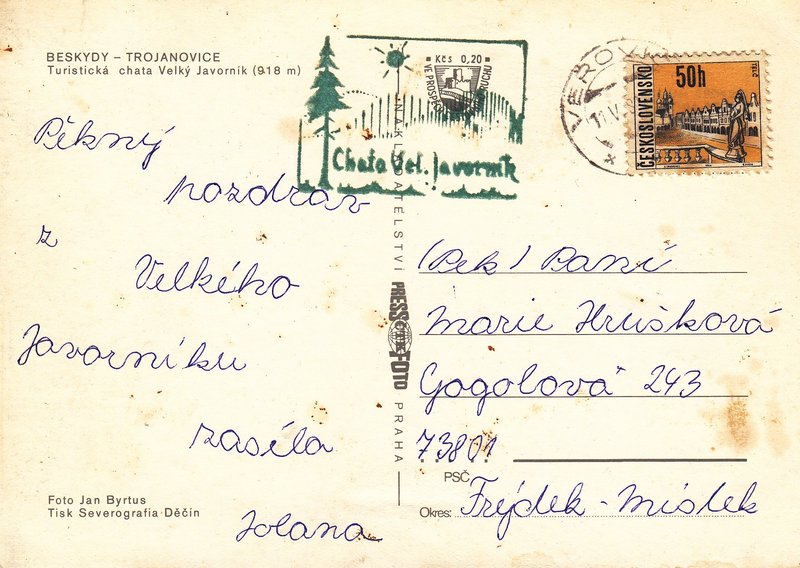 BESKYDY – TROJANOVICE
Turistická chata Velký Javorník (918 m)
Pěkný
pozdrav
z
Velkého
Javorníku
zasílá
Jolana
Foto Jan Byrtus
Tisk Severografia Děčín
Kčs 0,20
VE PROSPĚCH
Chata Vel. Javorník
NAKLADATELSTVÍ
PRESSFOTO
PRAHA
50h
ČESKOSLOVENSKO
TELČ
(Pek) Paní
Marie Hrušková
Gogolová 243
73801
PSČ
Okres: Frýdek-Místek